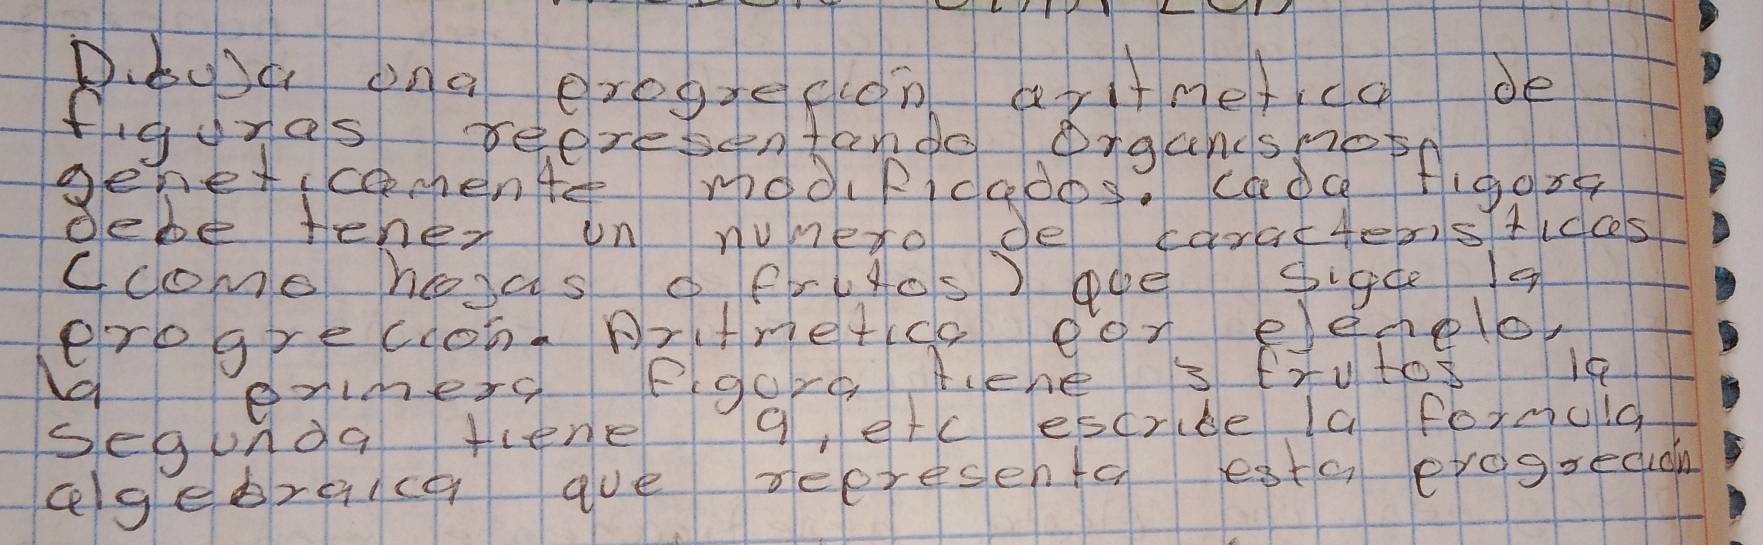 Dibuja una progreción aritmetica de
figuras representando Organismos
geneticamente modificados. cada figura
debe tener un numero de caracteristicas
(como hojas o frutos) que siga la
progreccion. Aritmetica por ejemplo,
la primera figura tiene 3 frutos la
segunda tiene 9, etc escribe la formula
algebraica que representa esta progreción